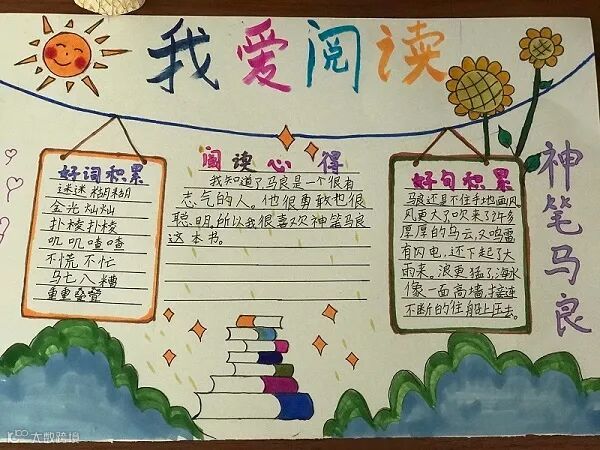 我爱阅读
好词积累
迷迷糊糊
金光灿灿
扑棱扑棱
叽叽喳喳
不慌不忙
乌七八糟
重重叠叠
阅读心得
我知道了马良是一个很有
志气的人。他很勇敢也很
聪明,所以我很喜欢神笔马良
这本书。
好句积累
马良还是不住手地画风,
风更大了吹来了许多
厚厚的乌云,又鸣雷
有闪电,还下起了大
雨来。浪更猛了,海水
像一面高墙,接连
不断的往船上压去。
神笔马良
大数跨境